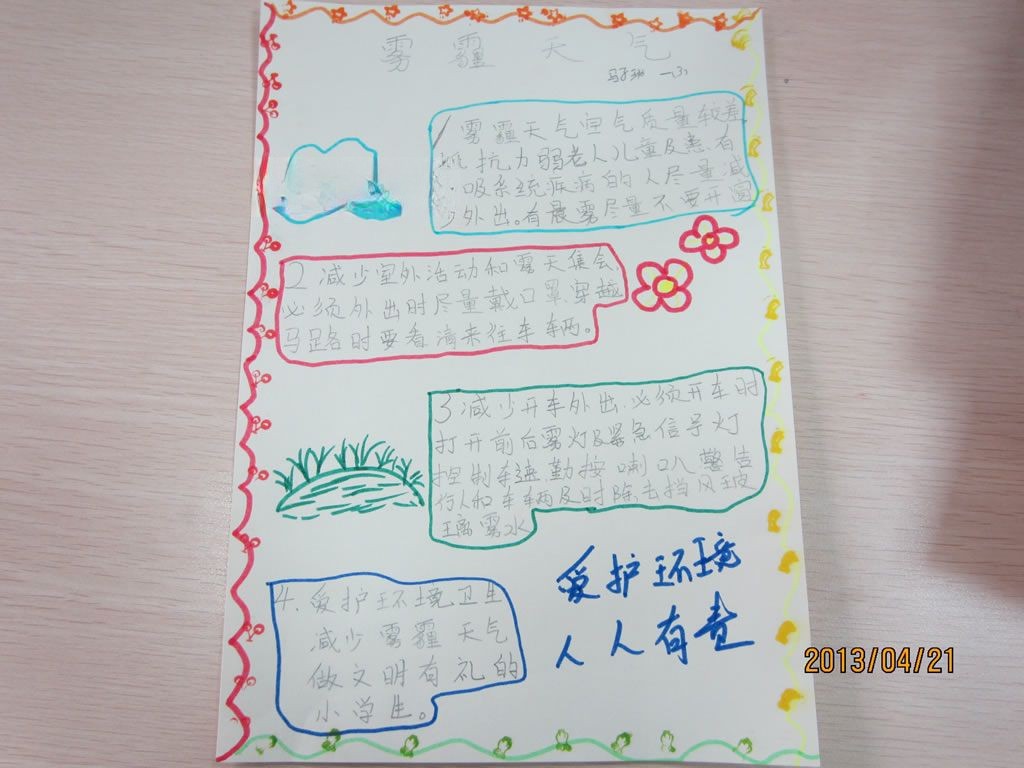 雾霾天气
一(3)
1 雾霾天气空气质量较差
抵抗力弱老人儿童及患有
吸系统疾病的人尽量减
少外出。有晨雾尽量不要开窗
2 减少室外活动和露天集会,
必须外出时尽量戴口罩,穿越
马路时要看清来往车辆。
3 减少开车外出.必须开车时
打开前后雾灯及紧急信号灯
控制车速勤按喇叭警告
行人和车辆及时除去挡风玻
璃雾水
4. 爱护环境卫生
减少雾霾天气
做文明有礼的
小学生。
爱护环境
人人有责
2013/04/21